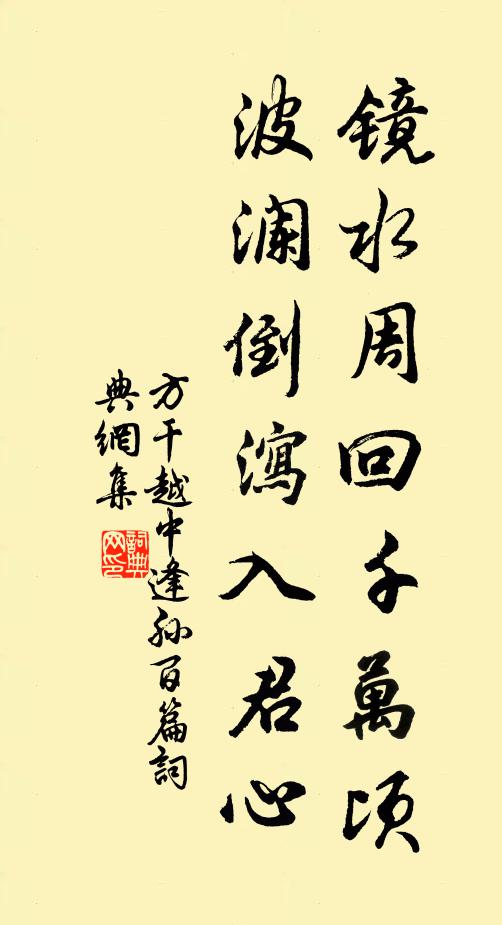 镜水周回千萬顷
波澜倒瀉入君心
方干越中逢孙百篇詞
典網集
詞典
网印